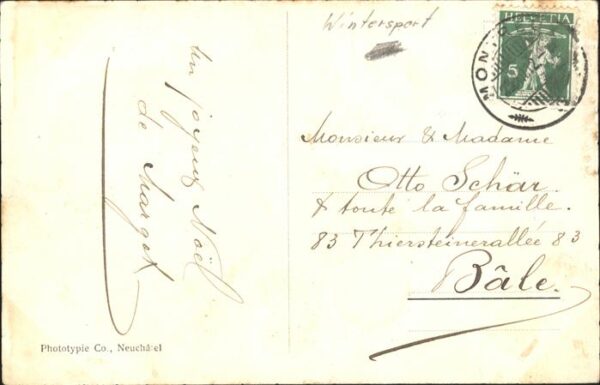 Wintersport
HELVETIA
5
Un joyeux Noël
de Margot
Monsieur & Madame
Otto Schär
& toute la famille.
83 Thiersteinerallée 83
Bâle.
Phototypie Co., Neuchâtel